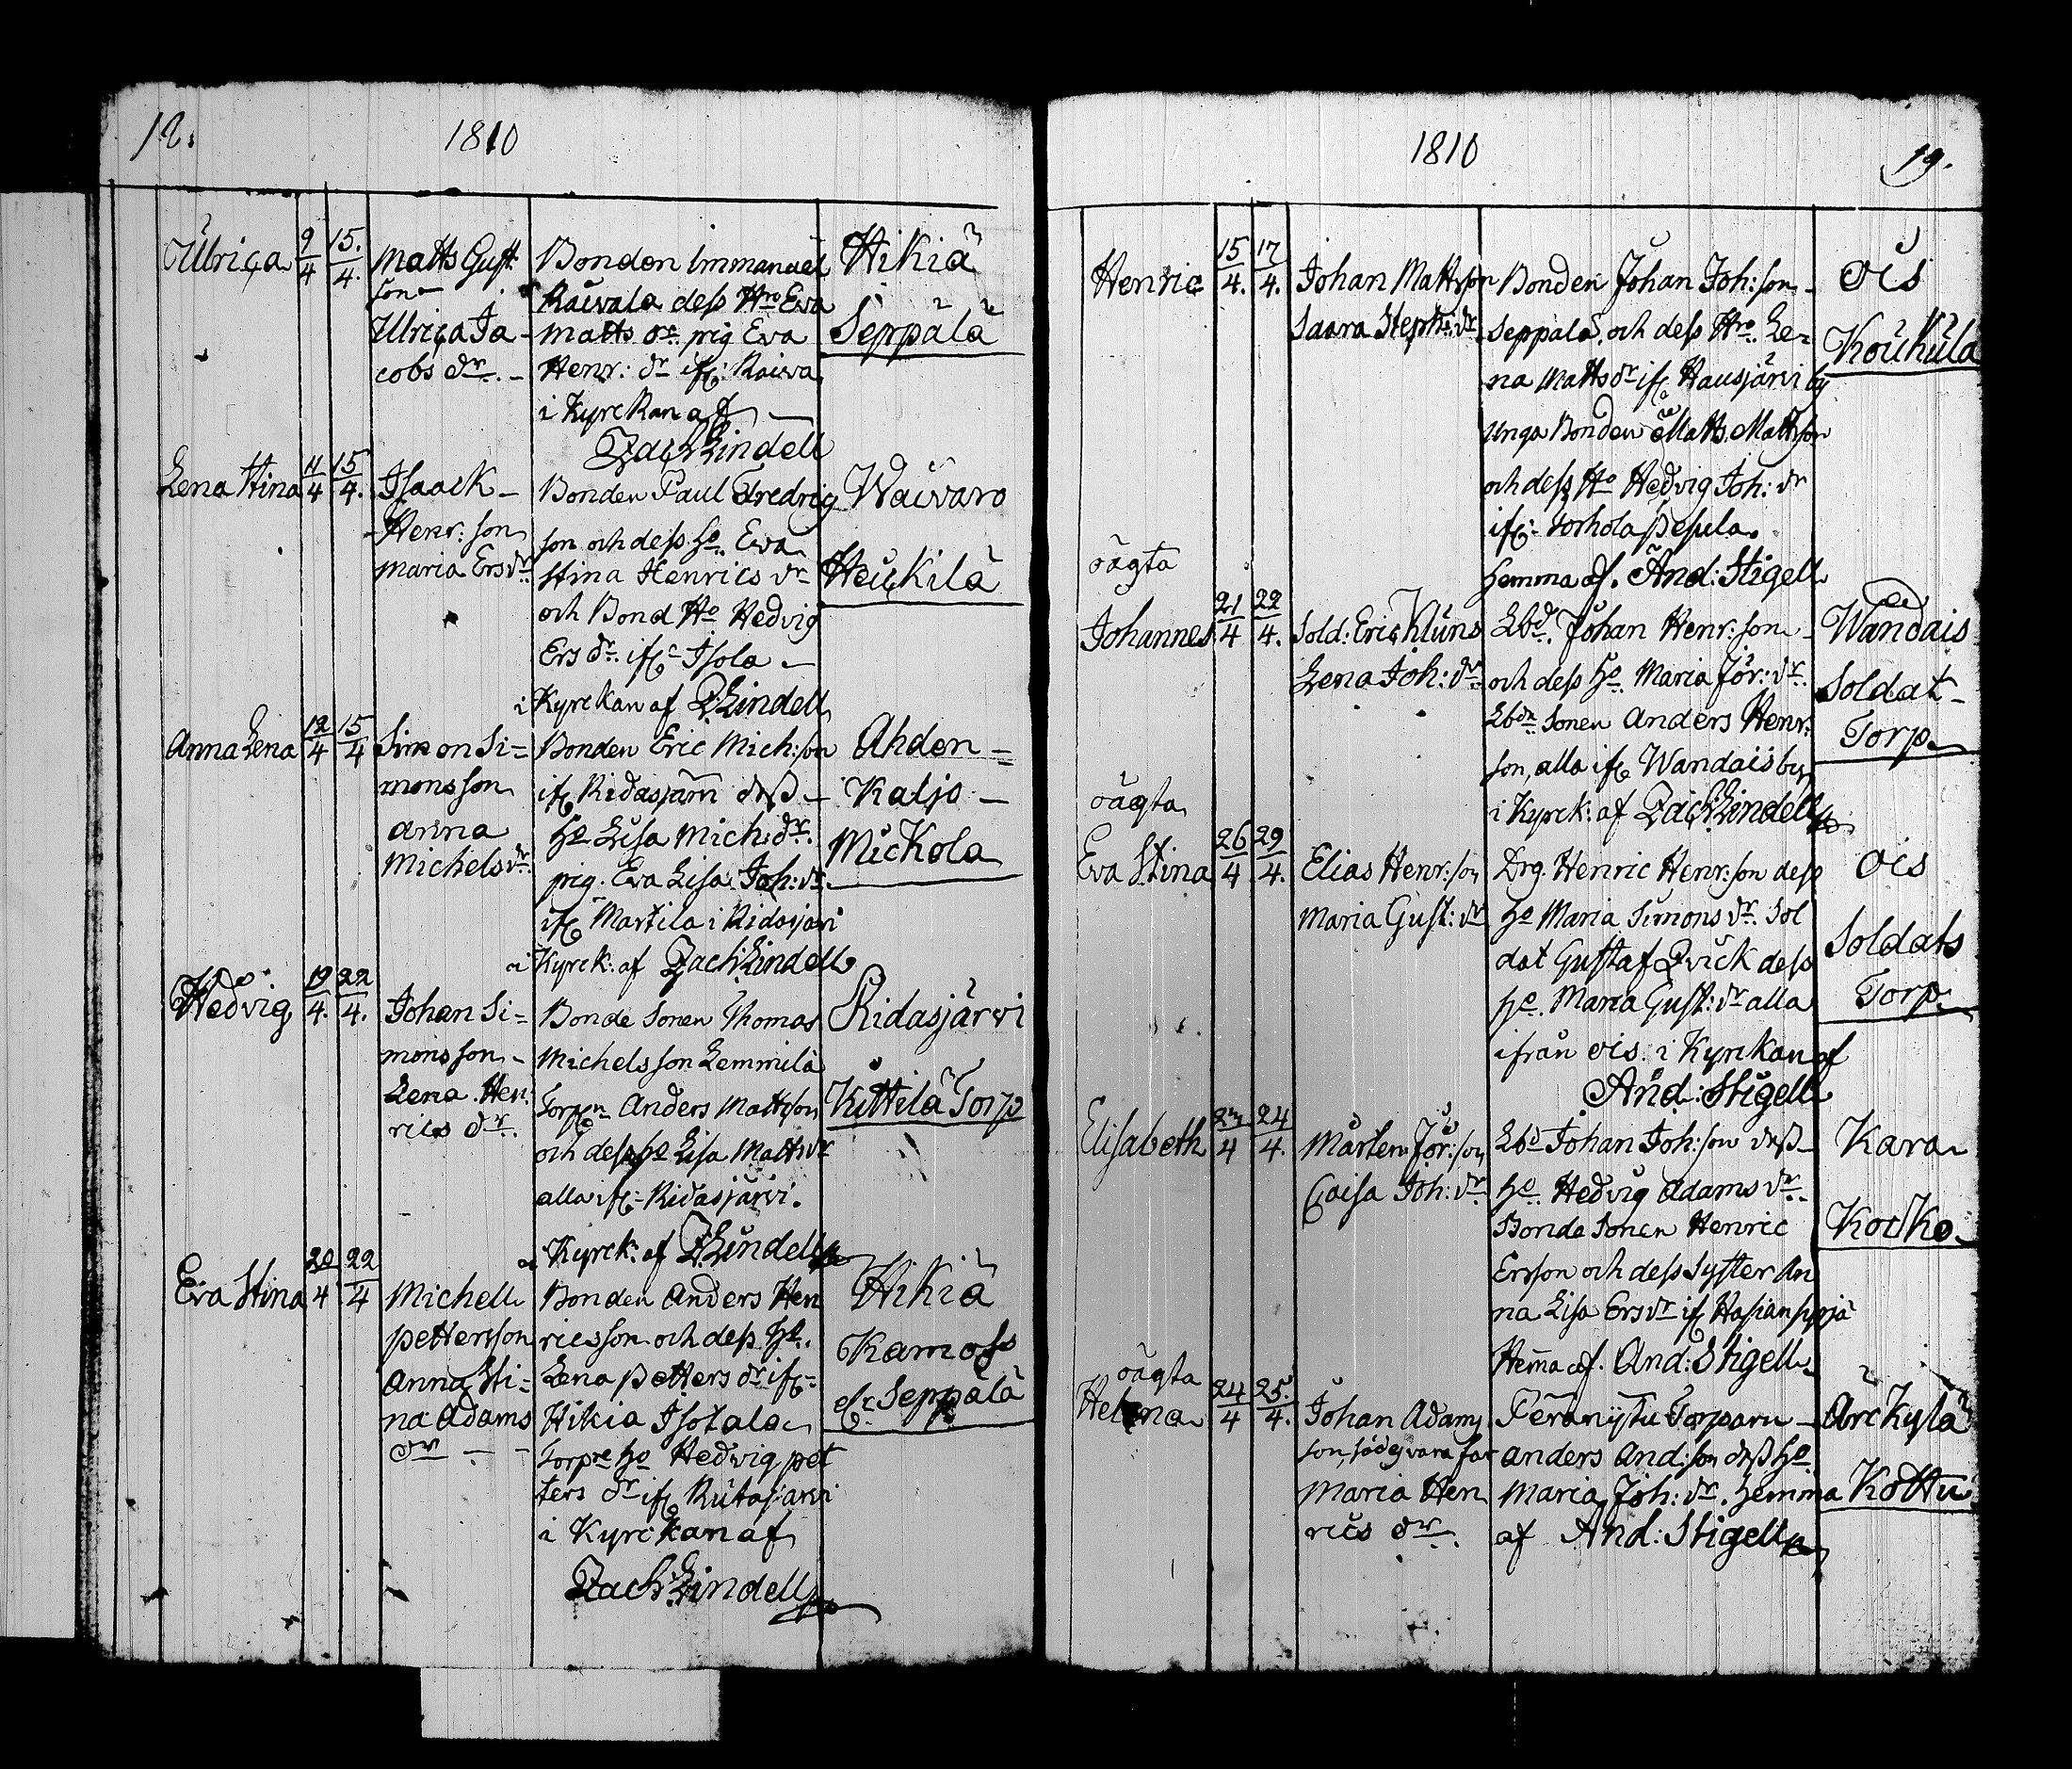 12.
1810
Ulrica 9/4 15./4.
Matts Gust:
son
Ulrica Ja-
cobs dr.
Bonden Immanuel
Raivala dess Hro Eva
Matts dr. pig Eva
Henr: dr ifr: Raiva
i Kyrckan af
Zach Lindell
Hikiä
Seppälä
Lena Stina 11/4 15/4.
Isaack
Henr: son
Maria Ers dr
Bonden Paul Fredrig
son och dess ho. Eva
Stina Henrics dr
och Bond Ho Hedvig
Ers dr. ifr: Isola
i Kyrckan af Z Lindell
Waivaro
Heickilä
Anna Lena 12/4 15/4
Simon Si=
monsson
Anna
Michels dr.
Bonden Eric Mich: son
ifr Ridasjärvi dess
Ho Lisa Mich: dr.
pig. Eva Lisa Joh: dr.
ifr Martila i Ridasjärvi
i Kyrck: af Zach Lindell
Ahden=
Kaljo
Mickola
Hedvig 19/4. 22/4.
Johan Si=
monsson
Lena Hen:
rics dr.
Bonde Sonen Thomas
Michelsson Lemmilä
Torp: Anders Mattsson
och dess ho Lisa Matts dr
alla ifr: Ridasjärvi.
i Kyrck: af Z Lindell
Ridasjärvi
Kittilä Torp
Eva Stina 20/4 22/4
Michell
Pettersson
Anna Sti=
na Adams
dr
Bonden Anders Hen
ricsson och dess ho.
Lena Petters dr ifr:
Hikia Isotalo
Torpre ho Hedvig Pet
ters dr ifr Rutajarvi
i Kyrckan af
Zach Lindell
Hikiä
Kamoss
Seppälä
1810
19.
Henric 15/4. 17/4.
Johan Mattsson
Saara Steph: dr.
Bonden Johan Joh: son
Seppälä, och dess Hro. Le=
na Matts dr ifr Hausjärvi by
unga Bonden Matts Mattsson
och dess Ho Hedvig Joh: dr
ifr: Torhola Pesula.
Hemma af. And: Stigell
Ois
Koukula
oägta
Johannes 21/4 22/4.
Sold: Eric Kluns
Lena Joh: dr
Lbd. Johan Henr: son
och dess Ho. Maria Jör: dr.
Lbdr Sonen Anders Henr:
son, alla ifr Wandais by
i Kyrck: af Zach Lindell
Wandais
Soldat
Torp
oägta
Eva Stina 26/4 29/4.
Elias Henr: son
Maria Gust: dr
Drg. Henric Henr: son dess
ho Maria Simons dr. Sol
dat Gustaf Qvick dess
ho. Maria Gust: dr alla
ifrån Ois. i Kyrckan af
And: Stigell
Ois
Soldats
Torp
Elisabeth 23/4 24/4.
Mårten Jör: son
Caisa Joh: dr
Lbd Johan Joh: son dess
ho. Hedvig Adams dr.
Bonde Sonen Henric
Ersson och dess Syster An
na Lisa Ers dr ifr
Hemma af. And: Stigell
Kara
Kocko
oägta
Helena 24/4 25./4.
Johan Adams
son, säges vara far
Maria Hen
rics dr.
Torparn
Anders And: son dess ho.
Maria Joh: dr. hemma
af And: Stigell
Ärckylä
Köttu